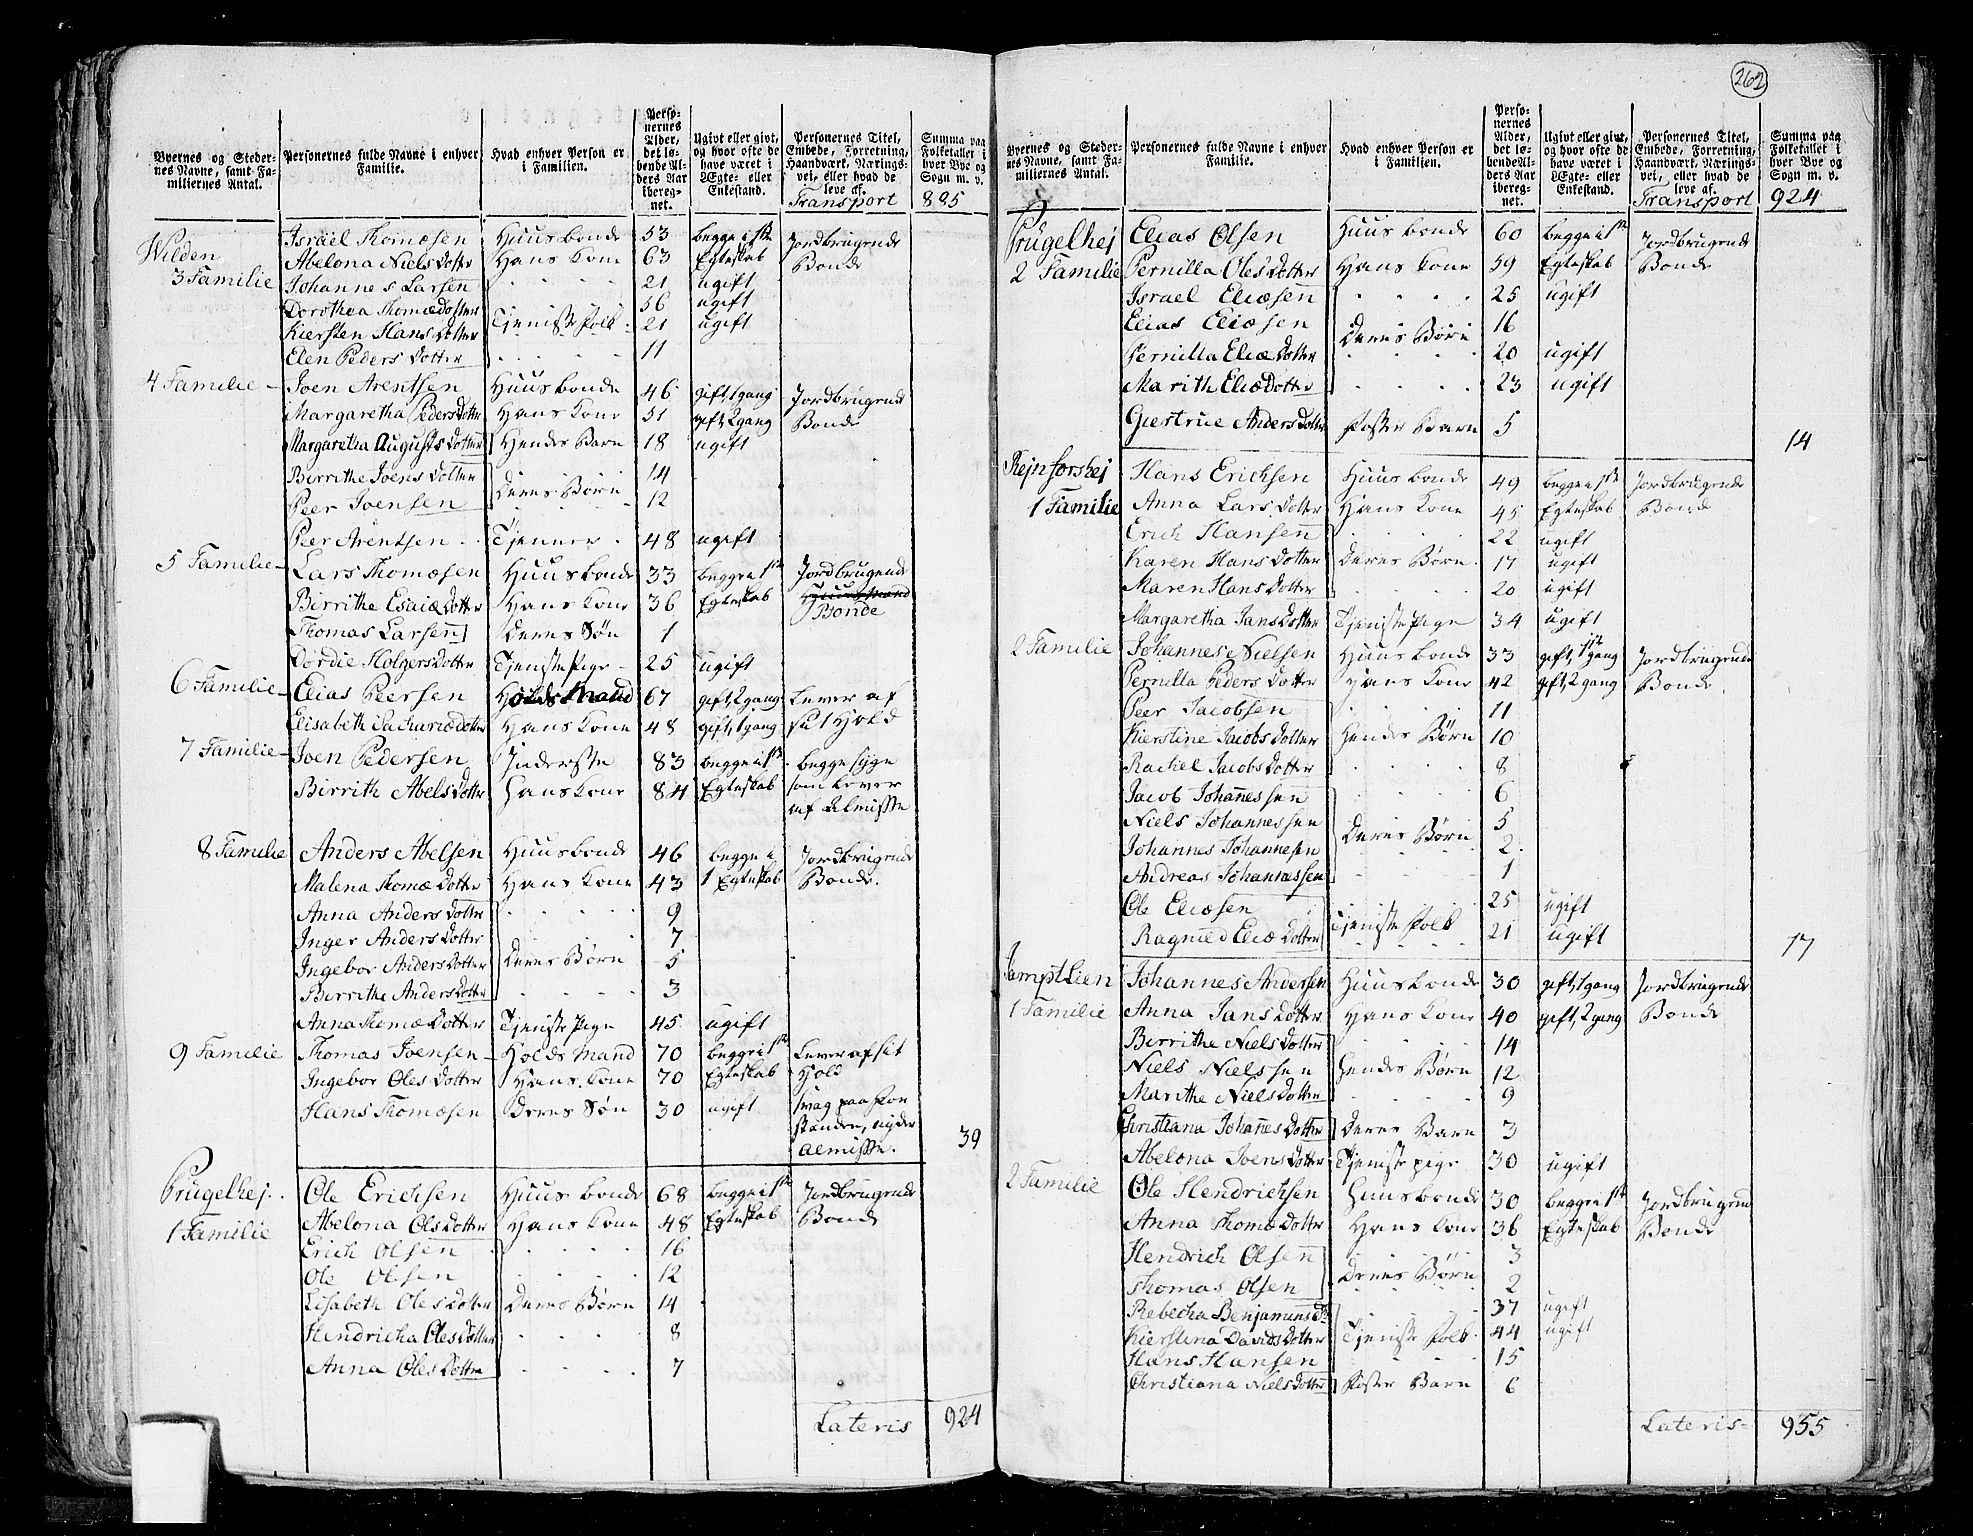 262
Byernes og Stedernes Navne, samt Familiernes Antal.
Personernes fulde Navne i enhver Familie.
Hvad enhver Person er i Familien.
Personernes Alder, det løbende Alders Aar iberegnet.
Ugivt eller givt, og hvor ofte de have været i Ægte- eller Enkestand.
Personernes Titel, Embede, Forretning, Haandværk, Nærings-vei, eller hvad de leve af.
Summa paa Folketallet i hver Bye og Sogn m. v.
Transport 885
Wilden 3 Familie Israel Thomæsen Huusbonde 53 begge i 1ste Jordbrugende
Abelona Niels Dotter Hans Kone 63 Egteskab Bonde
Johannes Larsen 21 ugift
Dorothea Thomædotter 56 ugift
Kiersten Hans Dotter Tjeniste Folk 21 ugift
Elen Peders Dotter 11
4 Familie Joen Arentsen Huusbonde 46 gift, 1 gang Jordbrugend
Margaretha Peders Dotter Hans Kone 51 gift, 2 gang Bonde
Margaretha Augusts Dotter Hendes Barn 18 ugift
Birrithe Joens Dotter 14
Peer Joensen Deres Børn 12
Peer Arentsen Tjenner 48 ugift
5 Familie Lars Thomæsen Huusbonde 33 begge i 1ste Jordbrugende
Birrithe Esaiæ Dotter Hans Kone 36 Egteskab Huusmand Bonde
Thomas Larsen Deres Søn 1
Dordie Holgers Dotter Tjeniste Pige 25 ugift
6 Familie Elias Peersen Holds Mand 67 gift, 2 gang Lever af
Elisabeth Sachariædotter Hans Kone 48 gift, 1 gang sit Hold
7 Familie Joen Pedersen Inderste 83 begge i 1ste begge syge
Birrith Abels Dotter Hans Kone 84 Egteskab som Lever
af Almisse
8 Familie Anders Abelsen Huusbonde 46 begge i Jordbrugende
Malena Thomæ Dotter Hans Kone 43 1 Egteskab Bonde.
Anna Anders Dotter 9
Inger Anders Dotter 7
Ingebor Anders Dotter Deres Børn 5
Birrithe Anders Dotter 3
Anna Thomæ Dotter Tjeniste Pige 45 ugift
9 Familie Thomas Joensen Holds Mand 70 begge i 1ste Lever af sit
Ingebor Oles Dotter Hans Kone 70 Egteskab Hold
Hans Thomæsen Deres Søn 30 ugift svag paa For
standen, nyder
Almisse. 39
Prügelhej 1 Familie Ole Erichsen Huusbonde 68 begge i 1ste Jordbrugende
Abelona Ols Dotter Hans Kone 48 Egteskab Bonde
Erich Olsen 16
Ole Olsen 12
Lisabeth Oles Dotter Deres Børn 14
Hendricha Oles Dotter 8
Anna Oles Dotter 7
Lateris 924
Byernes og Stedernes Navne, samt Familiernes Antal.
Personernes fulde Navne i enhver Familie.
Hvad enhver Person er i Familien.
Personernes Alder, det løbende Alders Aar iberegnet.
Ugivt eller givt, og hvor ofte de have været i Ægte- eller Enkestand.
Personernes Titel, Embede, Forretning, Haandværk, Nærings-vei, eller hvad de leve af.
Summa paa Folketallet i hver Bye og Sogn m. v.
Transport 924
Prügelhej Elias Olsen Huusbonde 60 begge i 1ste Jordbrugende
2 Familie Pernilla Oles Dotter Hans Kone 59 Egteskab Bonde
Israel Eliæsen 25 ugift
Elias Eliæsen 16
Deres Børn
Pernilla Eliæ Dotter 20 ugift
Marith Eliæ Dotter 23 ugift
Giertrue Anders Dotter Foster Barn 5
14
Rejnforshej Hans Erichsen Huusbonde 49 begge i 1ste Jordbrugende
1 Familie Anna Lars Dotter Hans Kone 45 Egteskab Bonde
Erich Hansen 22 ugift
Karen Hans Dotter Deres Børn 17 ugift
Maren Hans Dotter 20 ugift
Margaretha Jans Dotter Tjeniste Pige 34 ugift
2 Familie Johannes Nielsen Huusbonde 33 gift, 1ste gang Jordbrugende
Pernilla Peders Dotter Hans Kone 42 gift, 2 gang Bonde.
Peer Jacobsen 11
Kierstine Jacobs Dotter Hendes Børn 10
Rachel Jacobs Dotter 8
Jacob Johannessen 6
Niels Johannessen 5
Johannes Johannesen Deres Børn 2
Andreas Johannessen 1
Ole Eliæsen 25 ugift
Ragnild Eliæ Dotter Tjeniste Folk 21 ugift
17
Jamptlien Johannes Andersen Huusbonde 30 gift, 1 gang Jordbrugende
1 Familie Anna Jans Dotter Hans Kone 40 gift, 2 gang Bonde
Birrithe Niels Dotter 14
Niels Nielssen Hendes Børn 12
Marithe Niels Dotter 9
Christiana Johannes Dotter Deres Barn 3
Abelona Joens Dotter Tjeniste pige 30 ugift
2 Familie Ole Hendrichsen Huusbonde 30 begge i 1ste Jordbrugend
Anna Thomæ Dotter Hans Kone 36 Egteskab Bonde
Hendrich Olsen 3
Thomas Olsen Deres Børn 2
Rebecha Benjamins Dr 37 ugift
Kierstina Davids Dotter Tjeniste Folk 44 ugift
Hans Hansen 15
Christiana Niels Dotter Foster Barn 6
Lateris 955